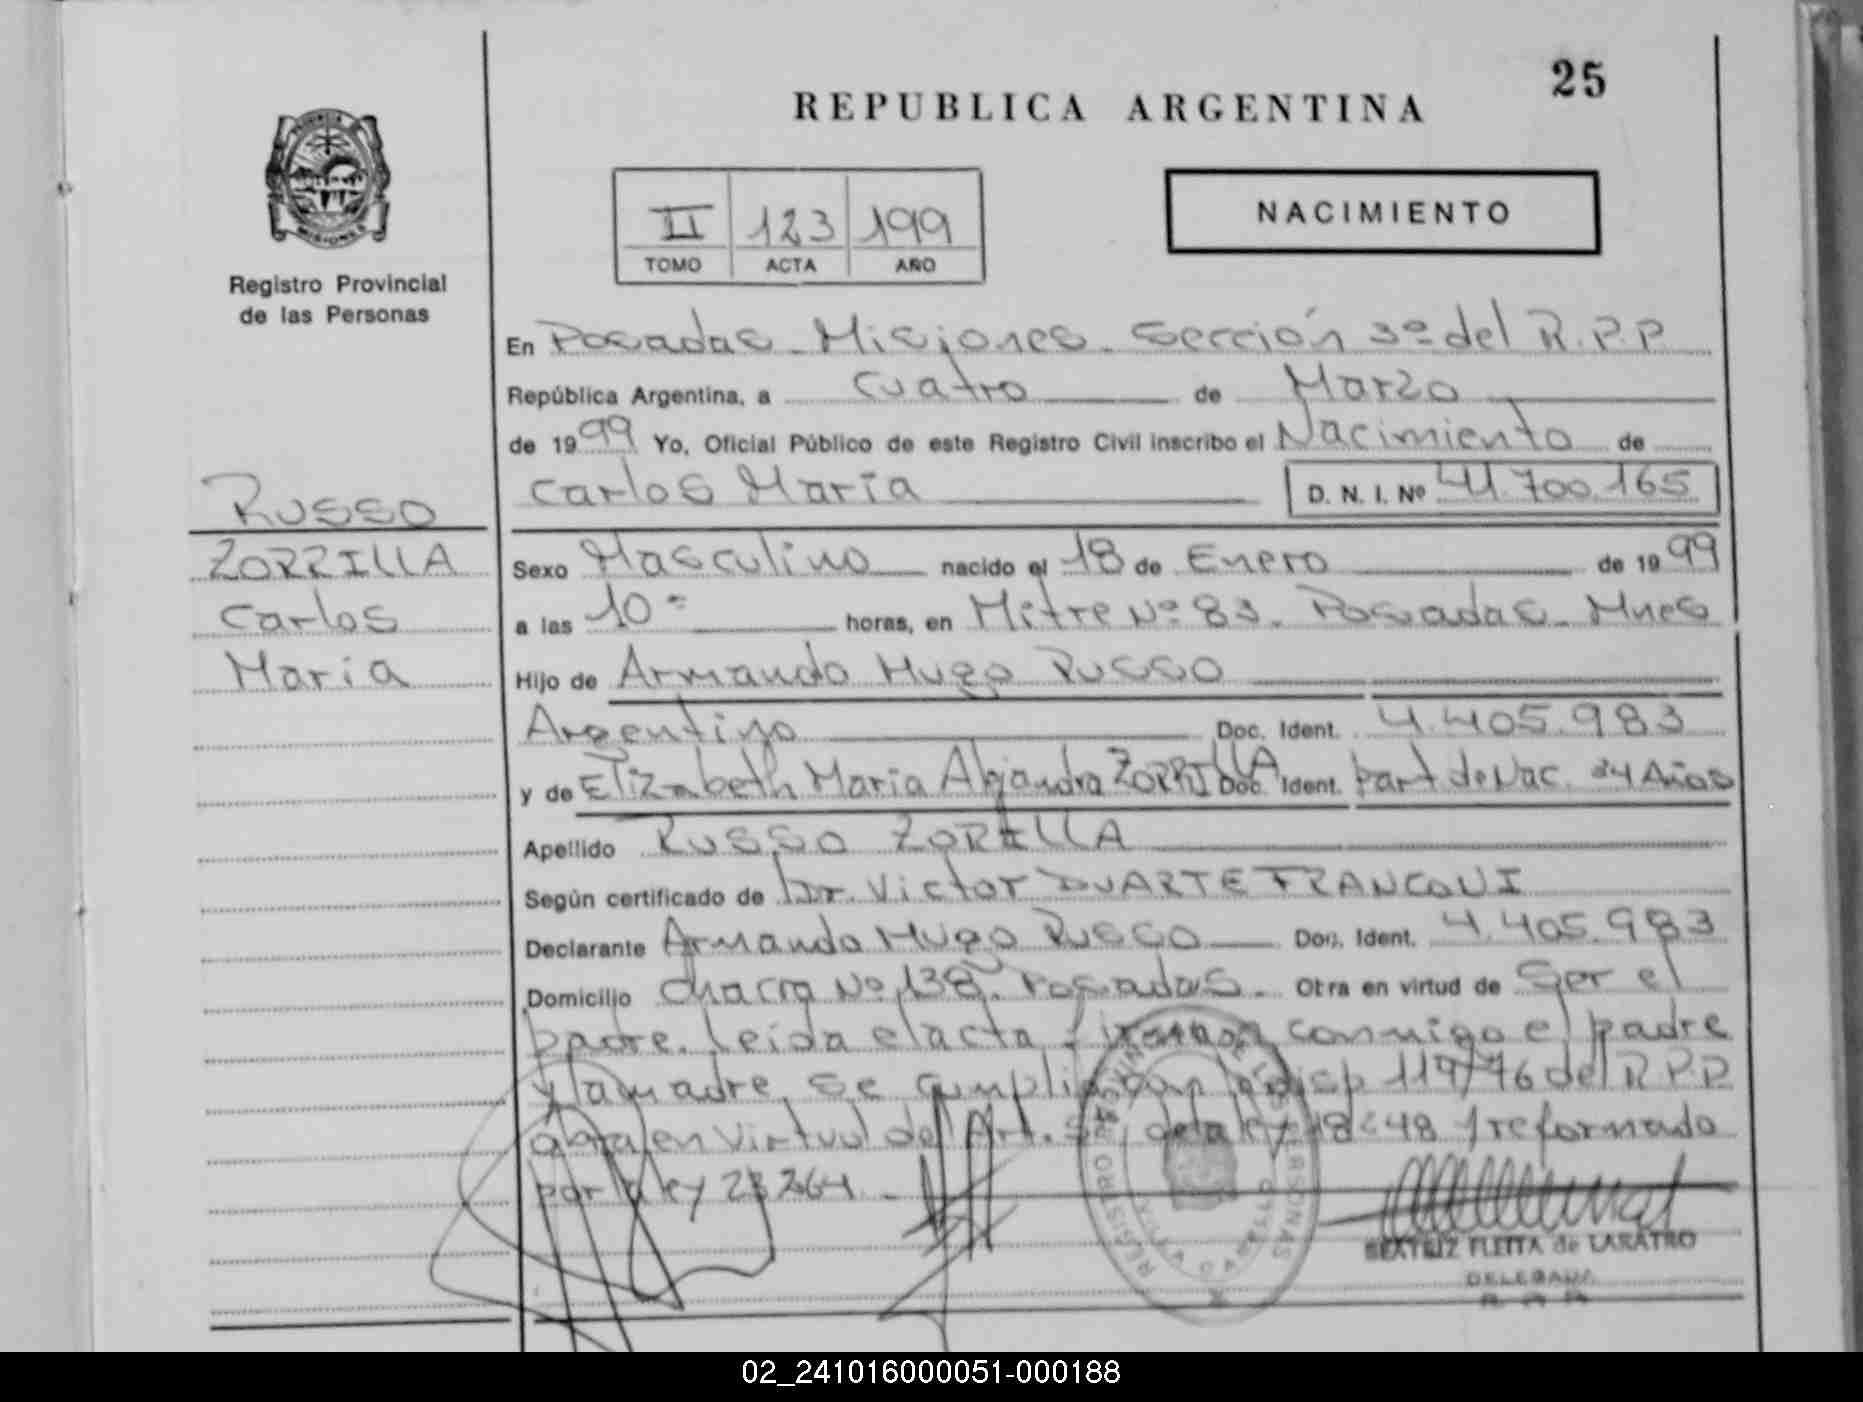 25
REPUBLICA ARGENTINA
PROVINCIA DE
MISIONES
Registro Provincial
de las Personas
II 123 199
TOMO ACTA AÑO
NACIMIENTO
En Posadas - Misiones - Sección 3º del R.P.P
República Argentina, a cuatro de Marzo
de 1999 Yo, Oficial Público de este Registro Civil inscribo el Nacimiento de
Carlos María D. N. I. Nº 41.700.165
RUSSO
ZORRILLA
Carlos
María
Sexo Masculino nacido el 18 de Enero de 1999
a las 10 horas, en Mitre Nº 83. Posadas - Mnes
Hijo de Armando Hugo RUSSO
Argentino Doc. Ident. 4.405.983
y de Elizabeth María Alejandra ZORRILLA Doc. Ident. part de Nac. 34 Años
Apellido RUSSO ZORRILLA
Según certificado de Dr. Victor DUARTE
Declarante Armando Hugo RUSSO Doc. Ident. 4.405.983
Domicilio Chacra Nº 138. Posadas. Otra en virtud de Ser el
padre. Leída el acta firman conmigo el padre
y la madre, se cumplio con la disp 119/76 del R.P.P
obra en virtud del Art. de la ley reformado
por la ley 23264.-
REGISTRO PROVINCIAL DE LAS PERSONAS
BEATRIZ FLEITA de LABATRO
DELEGADA
02_241016000051-000188